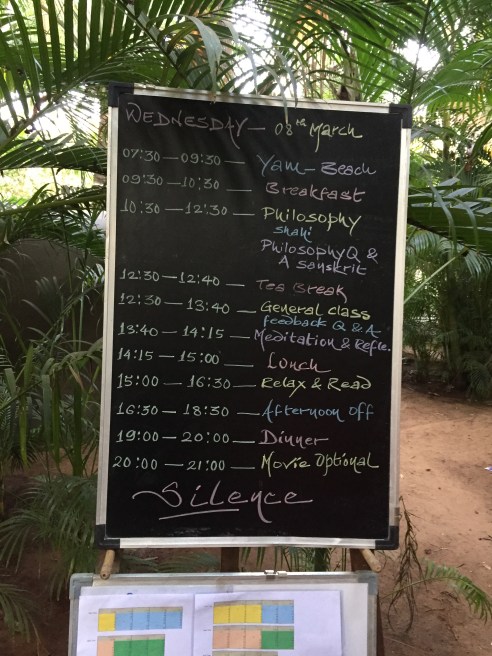 WEDNESDAY - 08th March
07:30 - 09:30 - Yam - Beach
09:30 - 10:30 - Breakfast
10:30 - 12:30 - Philosophy
Shani
Philosophy Q &
A Sanskrit
12:30 - 12:40 - Tea Break
12:30 - 13:40 - General class
feedback Q & A
13:40 - 14:15 - Meditation & Refle.
14:15 - 15:00 - Lunch
15:00 - 16:30 - Relax & Read
16:30 - 18:30 - Afternoon off
19:00 - 20:00 - Dinner
20:00 - 21:00 - Movie Optional
Silence